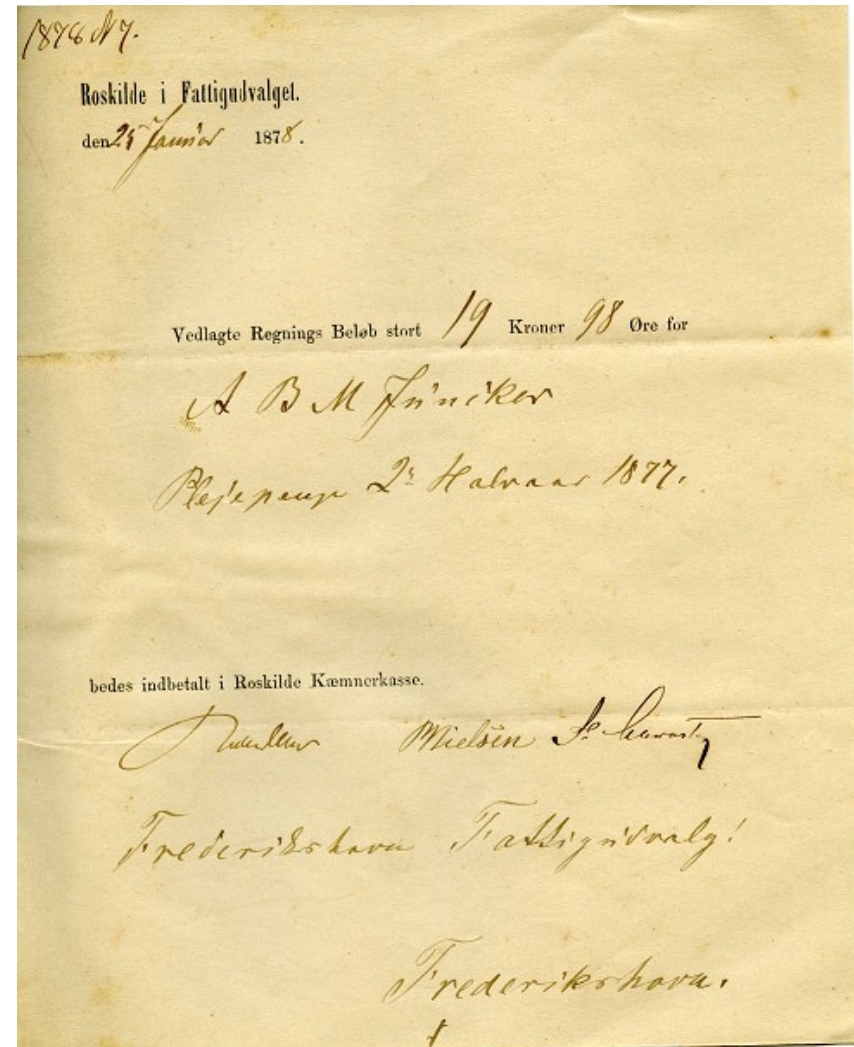 1878 N 7.
Roskilde i Fattigudvalget.
den 25 Januar 1878.
Vedlagte Regnings Beløb stort 19 Kroner 98 Øre for
A B M Juncker
Plejepenge 2 Halvaar 1877.
bedes indbetalt i Roskilde Kæmnerkasse.
Nielsen
Frederikshavn Fattigudvalg!
Frederikshavn.